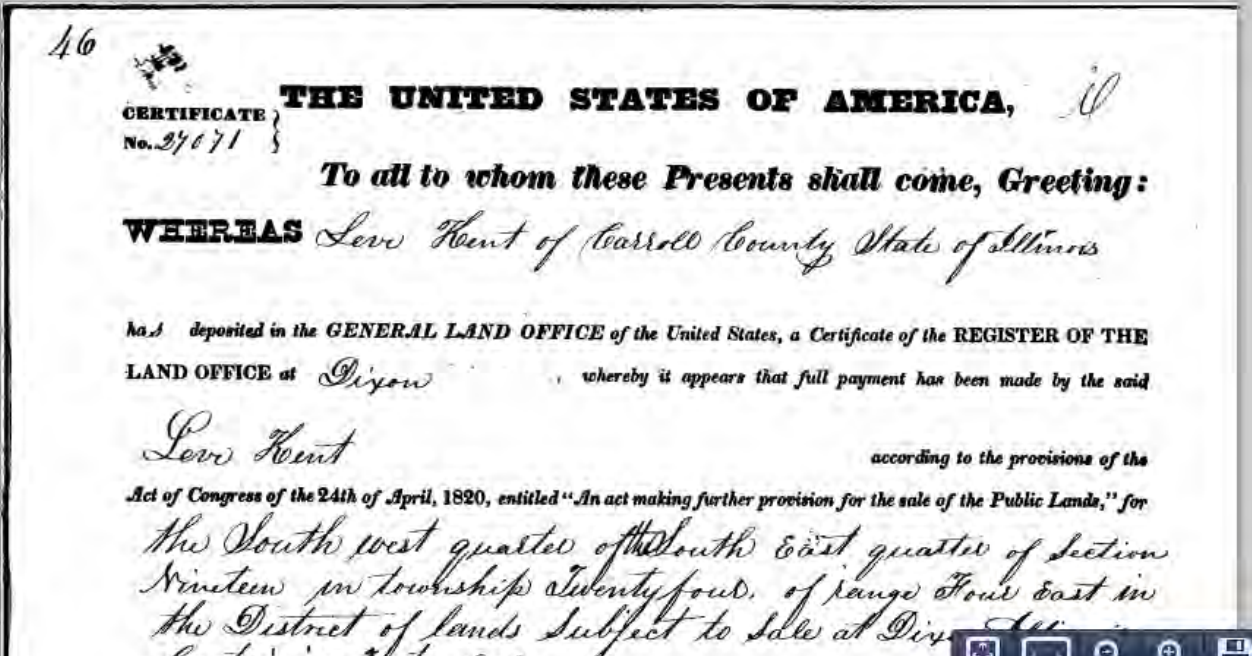 46
THE UNITED STATES OF AMERICA,
CERTIFICATE
No. 27071
To all to whom these Presents shall come, Greeting:
WHEREAS Levi Kent of Carroll County State of Illinois
has deposited in the GENERAL LAND OFFICE of the United States, a Certificate of the REGISTER OF THE
LAND OFFICE at Dixon , whereby it appears that full payment has been made by the said
Levi Kent
according to the provisions of the
Act of Congress of the 24th of April, 1820, entitled "An act making further provision for the sale of the Public Lands," for
the South west quarter of the South East quarter of Section
Nineteen in township Twenty four, of range Four East in
the District of lands Subject to Sale at